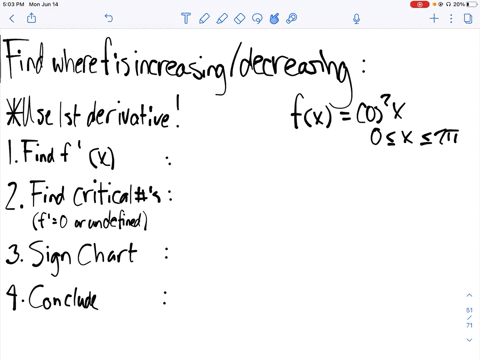 5:03 PM Mon Jun 14
20%
Find where f is increasing/decreasing :
*Use 1st derivative!
f(x) = cos²x
0 ≤ x ≤ 2π
1. Find f'(x) :
2. Find critical #'s :
(f'=0 or undefined)
3. Sign Chart :
4. Conclude :
51
/
71